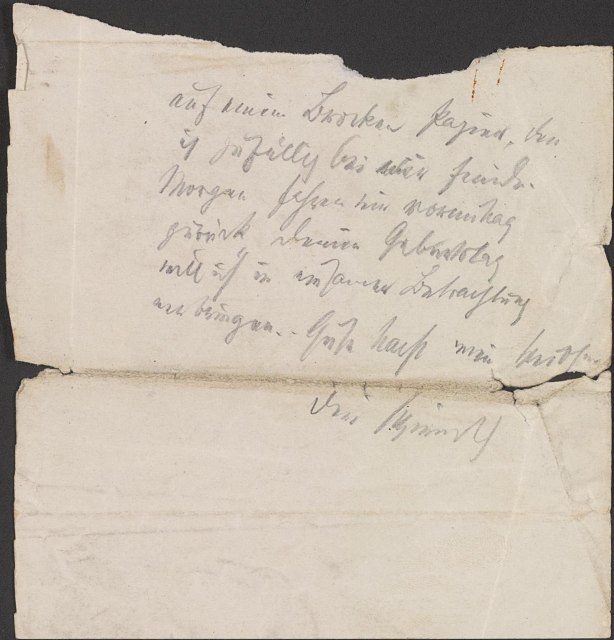 auf einem Brocken Papier, den
ich zufällig bei mir finde.
Morgen fahren wir vormittag
zurück, Deinen Geburtstag
will ich in einsamer Betrachtung
verbringen. – Gute Nacht mein
Dein